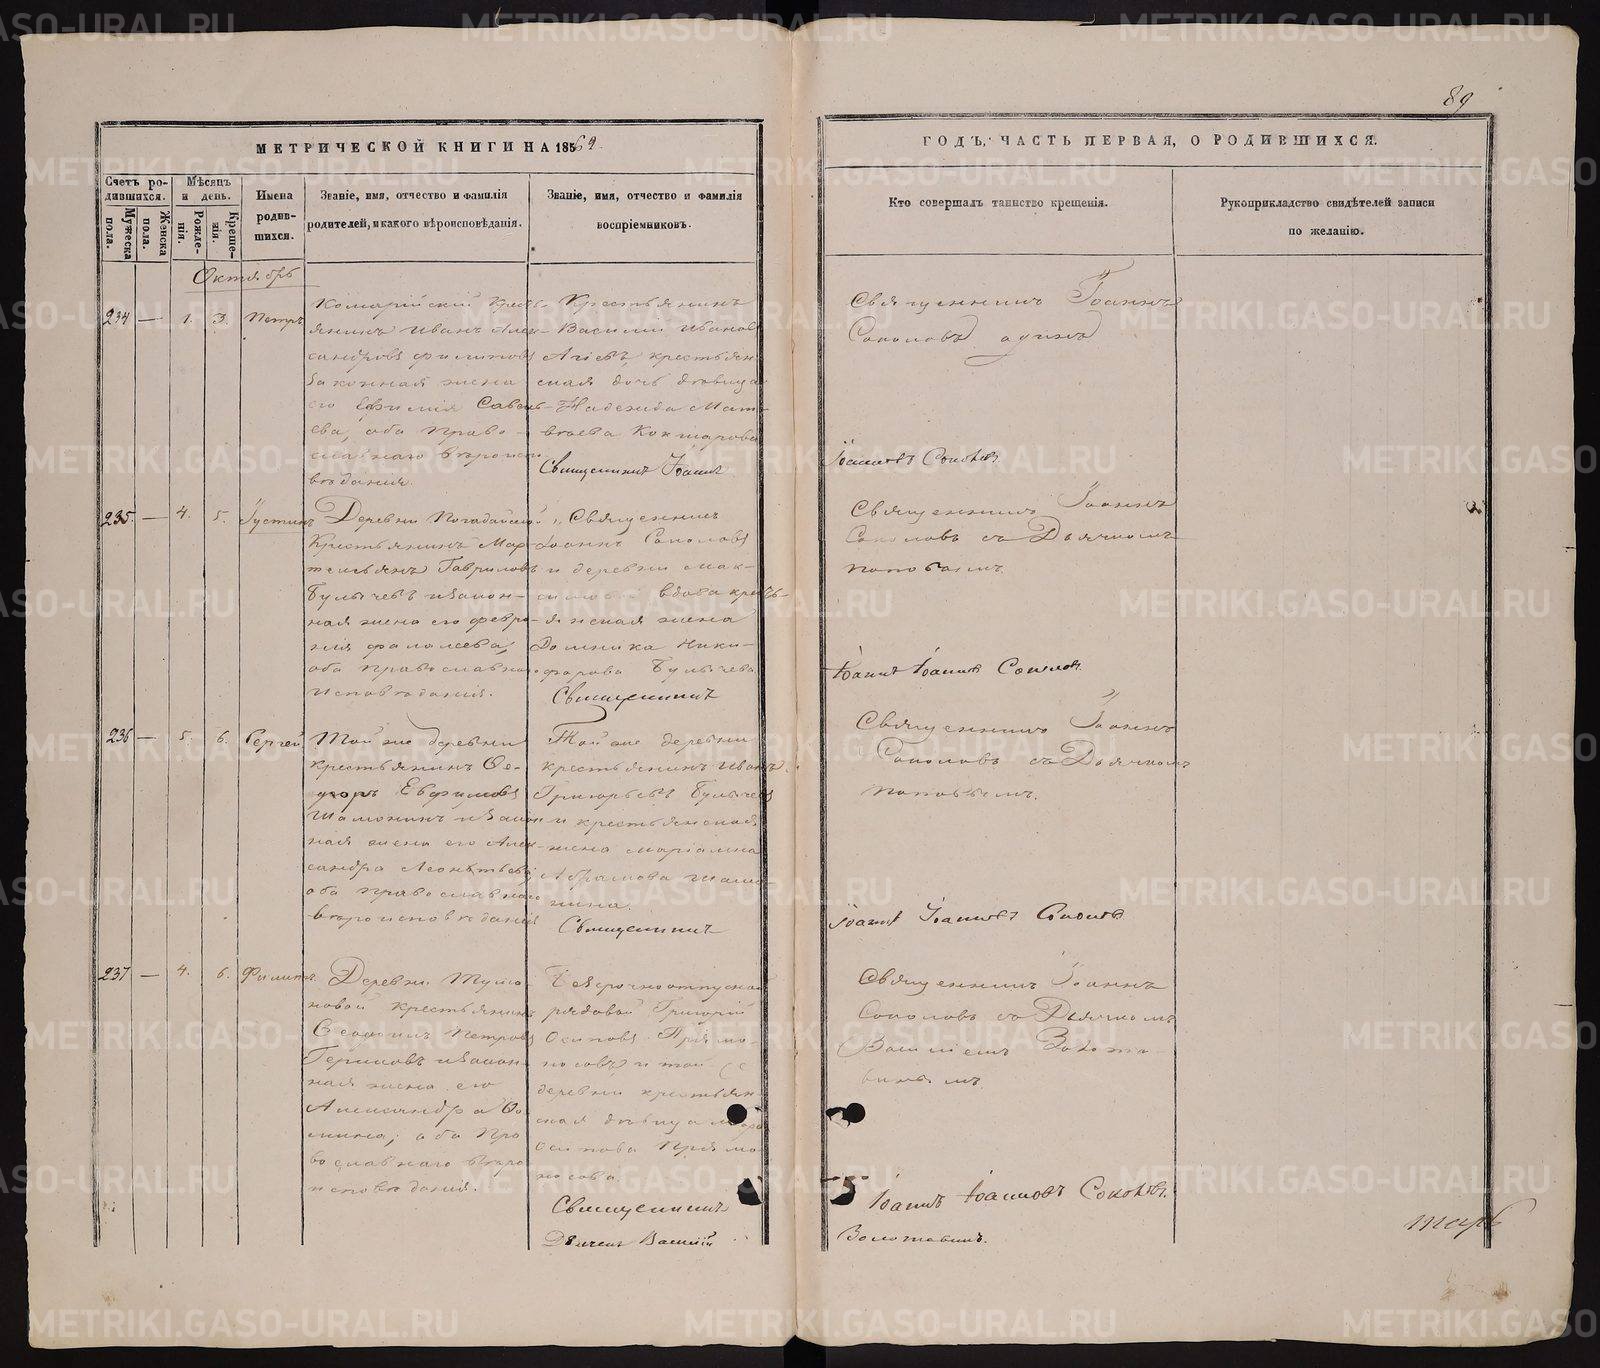 89
МЕТРИЧЕСКОЙ КНИГИ НА 1869
ГОДЪ, ЧАСТЬ ПЕРВАЯ, О РОДИВШИХСЯ.
Счетъ ро-
дившихся.
Мужеска
пола.
Женска
пола.
Мѣсяцъ
и день.
Рожде-
нія.
Креще-
нія.
Имена
родив-
шихся.
Званіе, имя, отчество и фамилія
родителей, и какого вѣроисповѣданія.
Званіе, имя, отчество и фамилія
воспріемниковъ.
Кто совершалъ таинство крещенія.
Рукоприкладство свидѣтелей записи
по желанію.
Октябрь
234 — 1. 3. Петръ
крест-
янинъ Иванъ Алек-
сандровъ Филиповъ
Законная жена
его Евфимія Савель-
ева, оба право-
славнаго вѣроиспо-
вѣданія.
Крестьянинъ
Василій Ивановъ
крестьян-
ская дочь дѣвица
Надежда Мат-
вѣева
Священникъ Іоаннъ
Священникъ Іоаннъ
Соколовъ одинъ
Іоанновъ Соколовъ
235. — 4. 5. Іустинъ
Деревни
Крестьянинъ Мар-
темьянъ Гавриловъ
Булычевъ и закон-
ная жена его Февро-
нія
оба православнаго
исповѣданія.
Священникъ
Іоаннъ Соколовъ
и деревни Мак-
симовой вдова кресть-
янская жена
Домника Ники-
форова Булычева
Священникъ
Священникъ Іоаннъ
Соколовъ съ Дьячкомъ
Поповымъ.
Іоаннъ Іоанновъ Соколовъ
236 — 5. 6. Сергей
Той же деревни
крестьянинъ Ѳе-
доръ Евфимовъ
Шамонинъ и закон-
ная жена его Алек-
сандра Леонтьева
оба православнаго
вѣроисповѣданія
Той же деревни
крестьянинъ Иванъ
Григорьевъ Булычевъ
и крестьянская
жена Маріамна
Абрамова Шамо-
нина.
Священникъ
Священникъ Іоаннъ
Соколовъ съ Дьячкомъ
Поповымъ.
Іоаннъ Іоанновъ Соколовъ
237 — 4. 6. Филипъ
Деревни
крестьянинъ
Ѳеофилъ Петровъ
и закон-
ная жена его
Александра Ѳо-
мина, оба пра-
вославнаго вѣро-
исповѣданія.
Безсрочноотпускной
рядовой Григорій
Осиповъ Пріямо-
носовъ и той же
деревни крестьян-
ская дѣвица
Осипова Пріямо-
носова
Священникъ
Дьячекъ Василій
Священникъ Іоаннъ
Соколовъ съ Дьячкомъ
Василіемъ Золота-
винымъ.
Іоаннъ Іоанновъ Соколовъ.
Золотавинъ.
METRIKI.GASO-URAL.RU